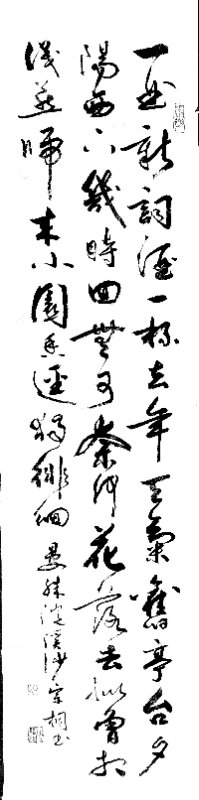 一曲新詞酒一杯去年天氣舊亭台夕
陽西下幾時回無可奈何花落去似曾相
識燕歸來小園香徑獨徘徊
晏殊浣溪沙